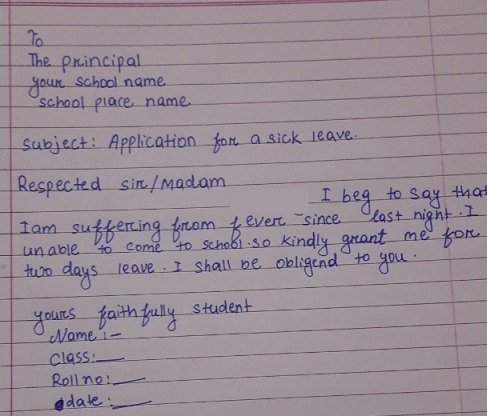 To
The principal
your school name
school place name
Subject: Application for a sick leave.
Respected sir/Madam
I beg to say that
I am suffering from fever since last night. I
unable to come to school. so kindly grant me for
two days leave. I shall be obligend to you.
yours faithfully student
Name :-
Class:
Roll no:
date: